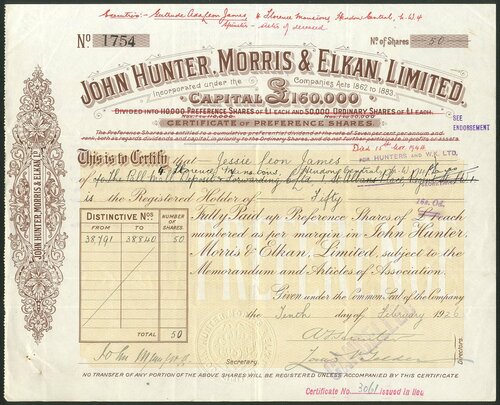 Executrix:- Gertrude Adaleon James, 4 Florence Mansions, Hendon Central, N.W.4
Spinster - sister of deceased
No 1754
No. of Shares 50
JOHN HUNTER, MORRIS & ELKAN, LIMITED.
Incorporated under the Companies Acts 1862 to 1883.
CAPITAL £160,000
DIVIDED INTO 110,000 PREFERENCE SHARES OF £1 EACH AND 50,000 ORDINARY SHARES OF £1 EACH.
CERTIFICATE OF PREFERENCE SHARES.
SEE ENDORSEMENT
The Preference Shares are entitled to a cumulative preferential dividend at the rate of Seven per cent per annum and
both as regards dividend and capital to priority over the Ordinary Shares, and do not further participate in profits or assets
Died 1944
This is to Certify that Jessie Leon James
FOR HUNTERS and
4 Florence Mansions, Hendon Central, N.W.4
is the Registered Holder of Fifty
16s. 0d.
Fully Paid up Preference Shares of £1 each
numbered as per margin in John Hunter,
Morris & Elkan, Limited, subject to the
Memorandum and Articles of Association.
DISTINCTIVE Nos
NUMBER OF SHARES
FROM TO
38791 38840 50
TOTAL 50
Given under the Common Seal of the Company
the Tenth day of February 1926
Secretary.
Directors.
JOHN HUNTER, MORRIS & ELKAN LD
NO TRANSFER OF ANY PORTION OF THE ABOVE SHARES WILL BE REGISTERED UNLESS ACCOMPANIED BY THIS CERTIFICATE.
Certificate No. 3061 issued in lieu